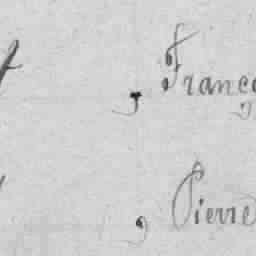 , Franço
, Pierre